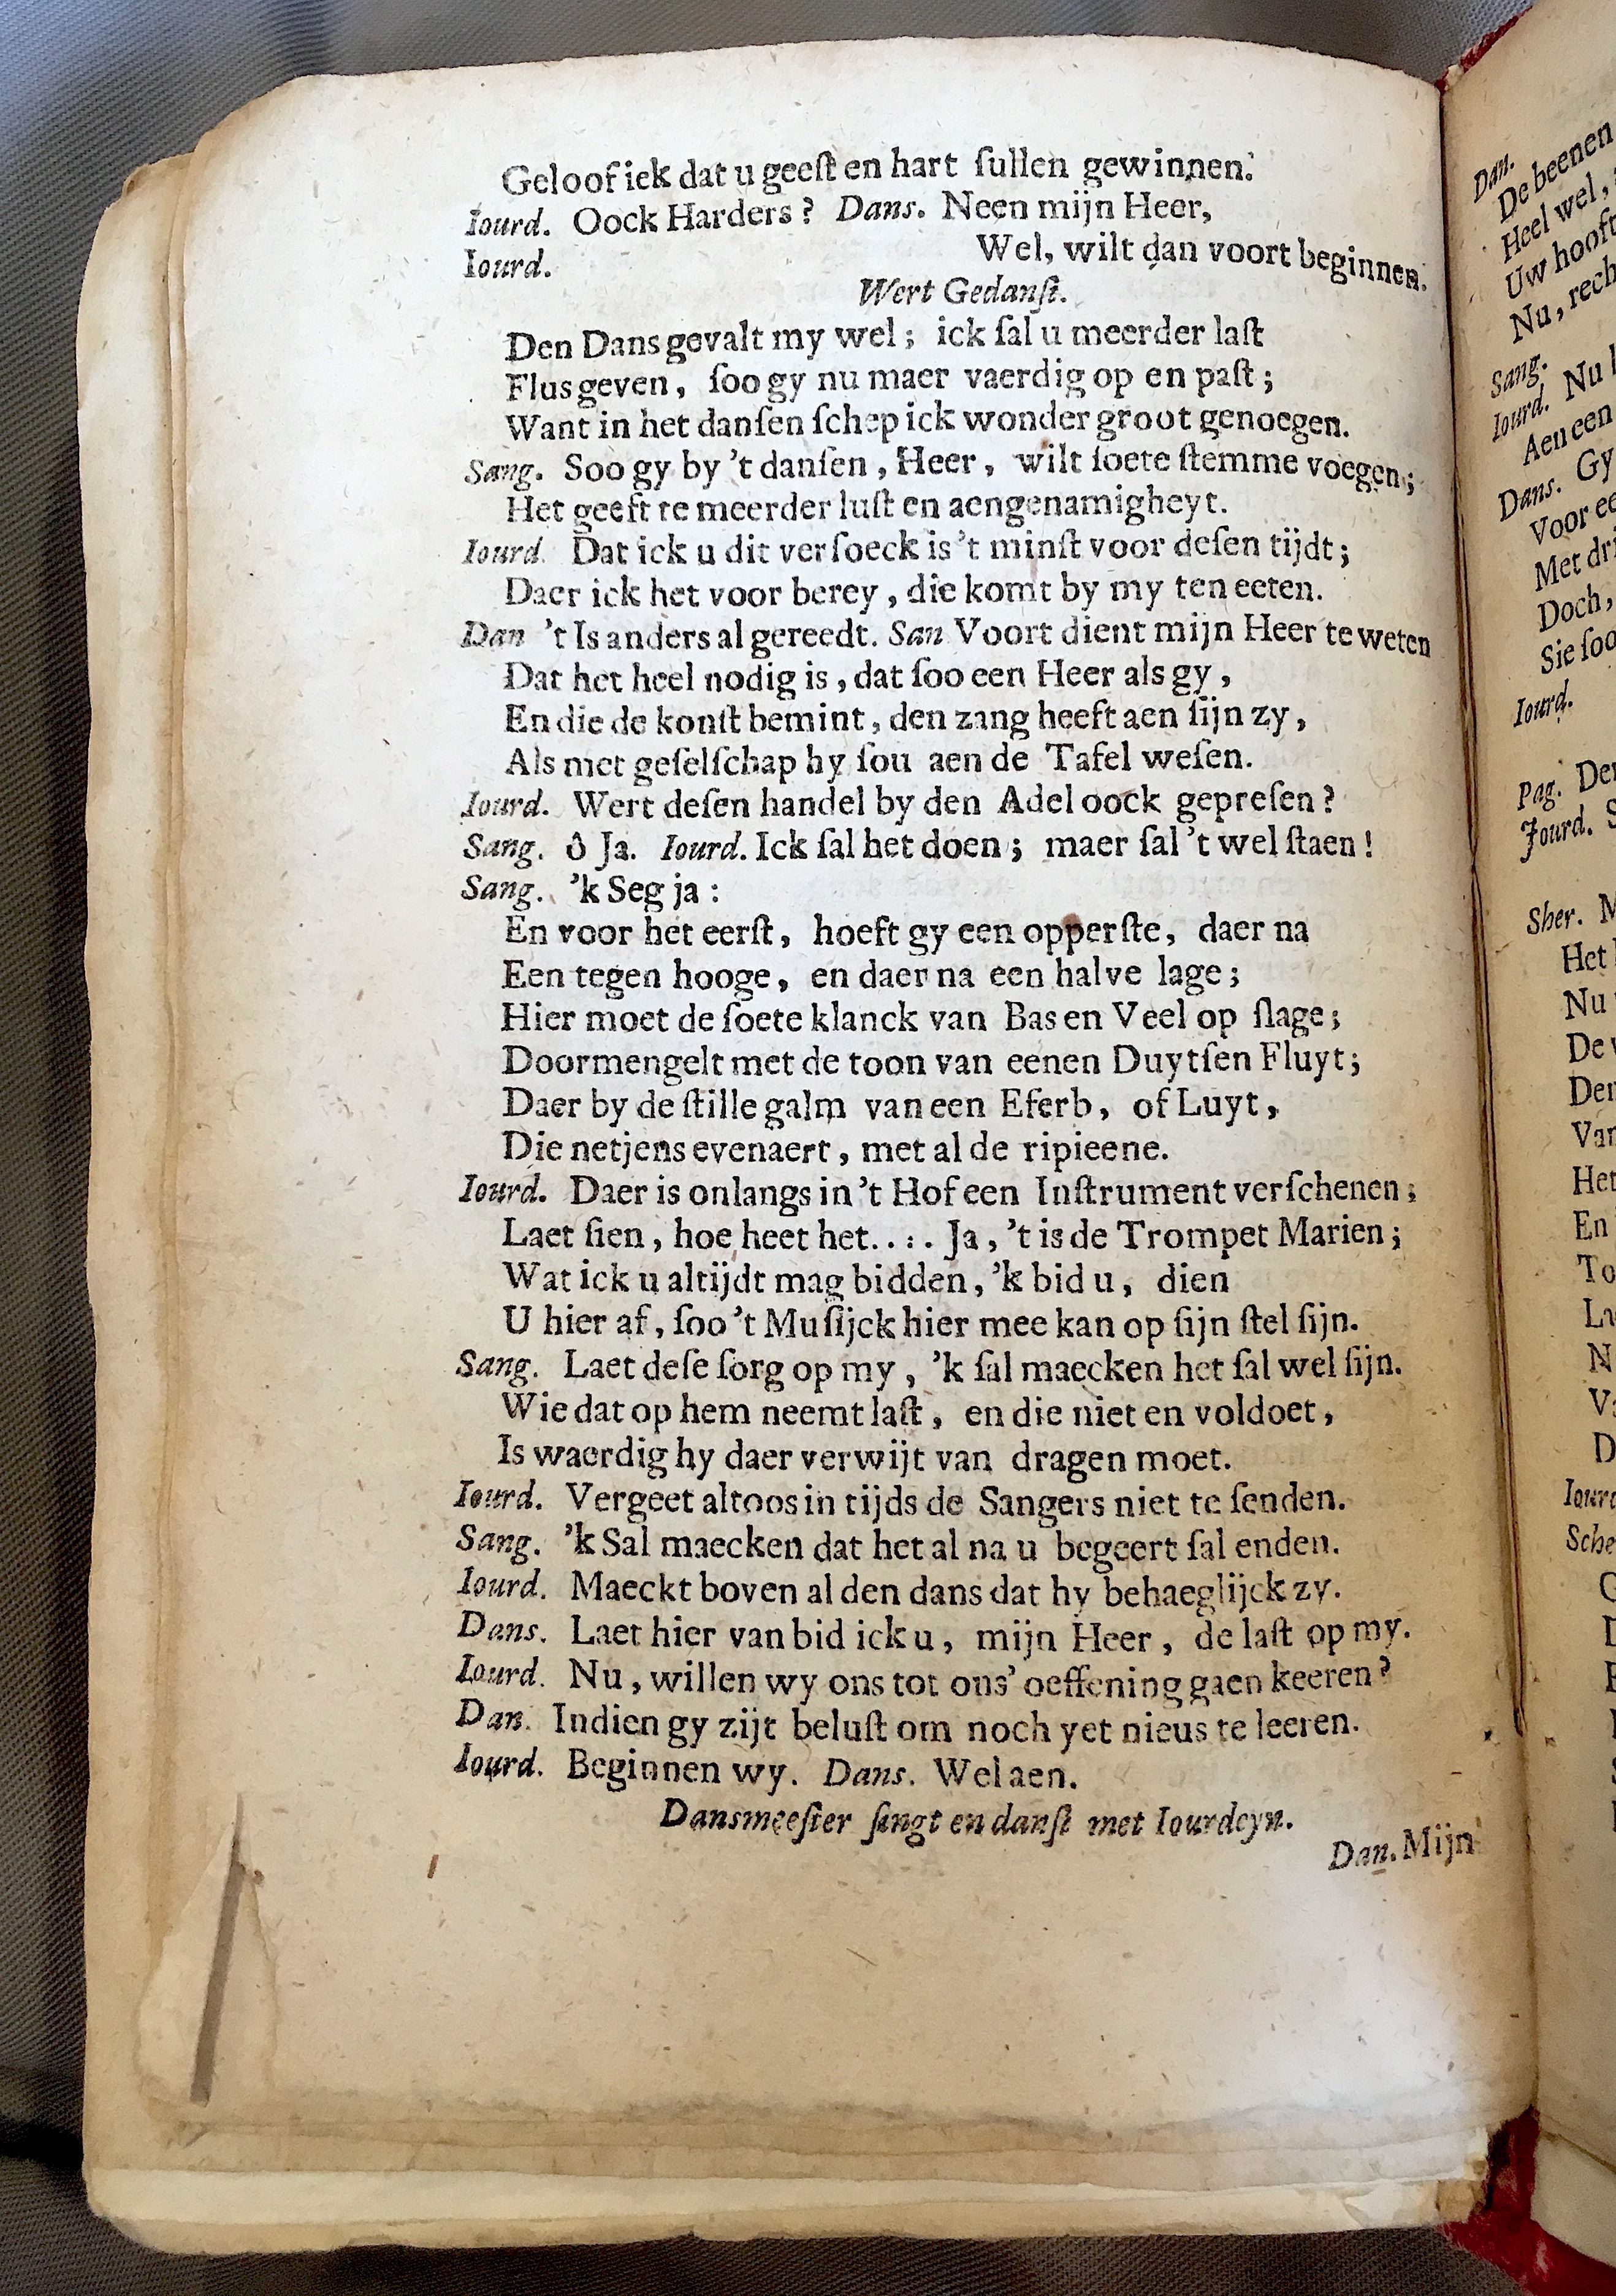 Geloof iek dat u geeſt en hart ſullen gewinnen.
Iourd. Oock Harders? Dans. Neen mijn Heer,
Iourd. Wel, wilt dan voort beginnen.
Wert Gedanſt.
Den Dans gevalt my wel; ick ſal u meerder laſt
Flus geven, ſoo gy nu maer vaerdig op en paſt;
Want in het danſen ſchep ick wonder groot genoegen.
Sang. Soo gy by 't danſen, Heer, wilt ſoete ſtemme voegen;
Het geeft te meerder luſt en aengenamigheyt.
Iourd. Dat ick u dit verſoeck is 't minſt voor deſen tijdt;
Daer ick het voor berey, die komt by my ten eeten.
Dan 't Is anders al gereedt. San Voort dient mijn Heer te weten
Dat het heel nodig is, dat ſoo een Heer als gy,
En die de konſt bemint, den zang heeft aen ſijn zy,
Als met geſelſchap hy ſou aen de Tafel weſen.
Iourd. Wert deſen handel by den Adel oock gepreſen?
Sang. ô Ja. Iourd. Ick ſal het doen; maer ſal 't wel ſtaen!
Sang. 'k Seg ja:
En voor het eerſt, hoeft gy een opperſte, daer na
Een tegen hooge, en daer na een halve lage;
Hier moet de ſoete klanck van Bas en Veel op ſlage;
Doormengelt met de toon van eenen Duytſen Fluyt;
Daer by de ſtille galm van een Eferb, of Luyt,
Die netjens evenaert, met al de ripieene.
Iourd. Daer is onlangs in 't Hof een Inſtrument verſchenen;
Laet ſien, hoe heet het.... Ja, 't is de Trompet Marien;
Wat ick u altijdt mag bidden, 'k bid u, dien
U hier af, ſoo 't Muſijck hier mee kan op ſijn ſtel ſijn.
Sang. Laet deſe ſorg op my, 'k ſal maecken het ſal wel ſijn.
Wie dat op hem neemt laſt, en die niet en voldoet,
Is waerdig hy daer verwijt van dragen moet.
Iourd. Vergeet altoos in tijds de Sangers niet te ſenden.
Sang. 'k Sal maecken dat het al na u begeert ſal enden.
Iourd. Maeckt boven al den dans dat hy behaeglijck zy.
Dans. Laet hier van bid ick u, mijn Heer, de laſt op my.
Iourd. Nu, willen wy ons tot ons' oeffening gaen keeren?
Dan. Indien gy zijt beluſt om noch yet nieus te leeren.
Iourd. Beginnen wy. Dans. Wel aen.
Dansmeeſter ſingt en danſt met Iourdeyn.
Dan. Mijn
Dan.
De beenen
Heel wel,
Uw hooft
Nu, rech
Sang.
Iourd. Nu
Aen een
Dans. Gy
Voor ee
Met dri
Doch,
Sie ſoo
Iourd.
Pag. Den
Jourd. S
Sher. M
Het
Nu
De
Den
Van
Het
En
To
La
N
V
D
Iourd
Sche